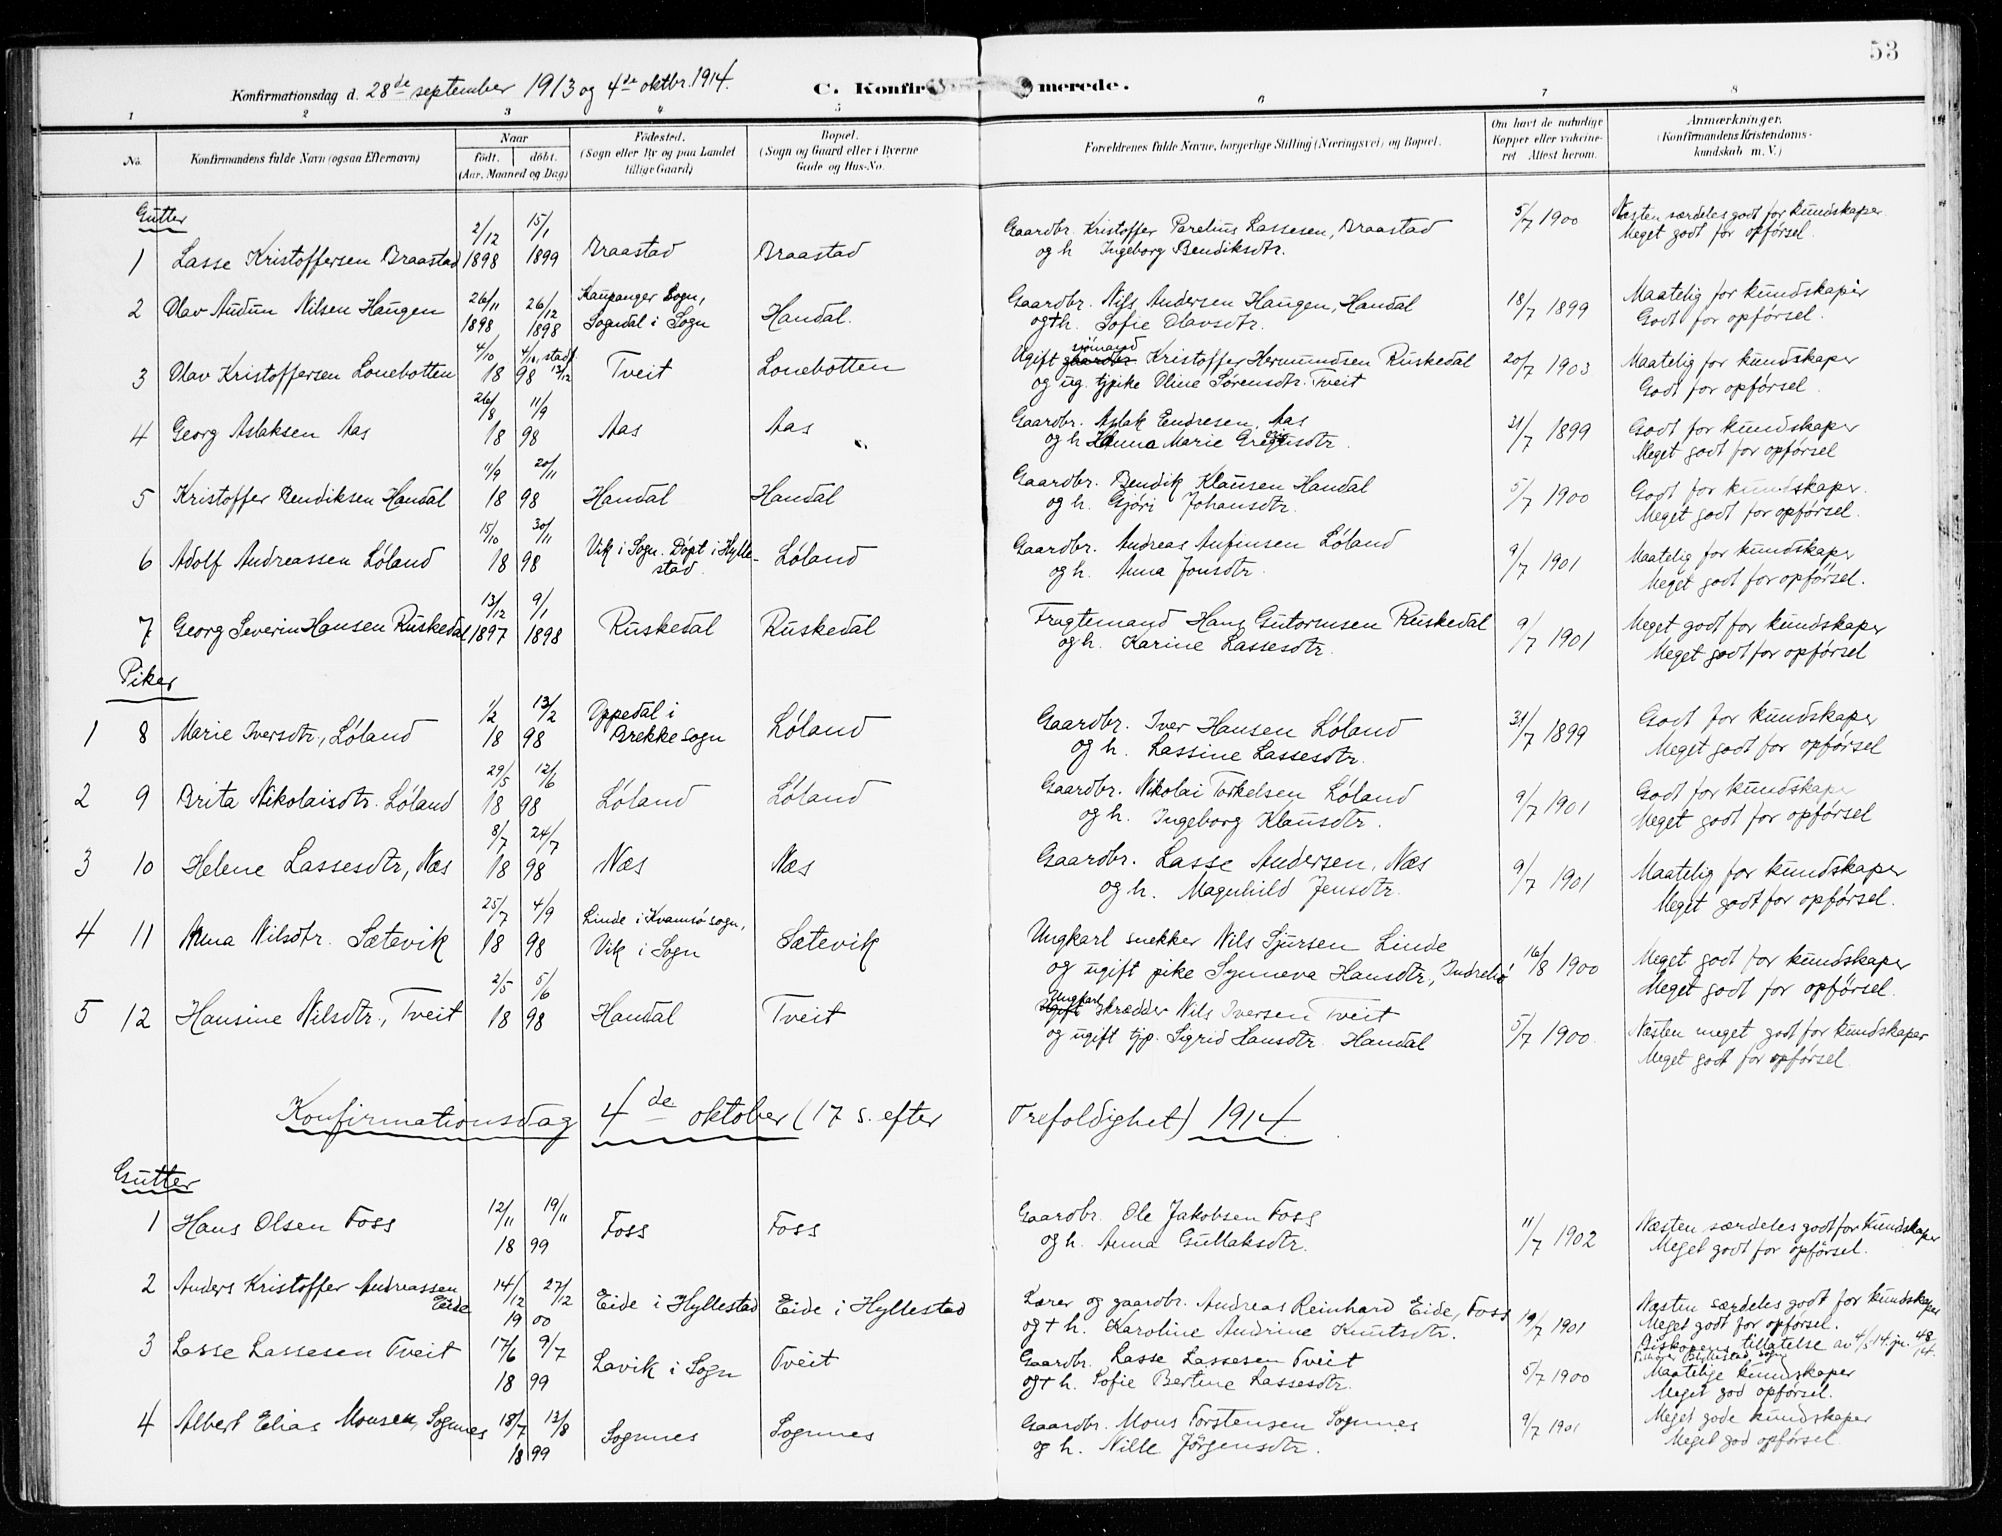 53
Konfirmationsdag d. 28de september 1913 og 4de oktbr. 1914.
C. Konfir merede.
1 2 3 4 5 6 7 8
No. Konfirmandens fulde Navn (ogsaa Efternavn) Naar født. døbt. (Aar, Maaned og Dag) Fødested. (Sogn eller By og paa Landet tillige Gaard) Bopæl. (Sogn og Gaard eller i Byerne Gade og Hus-No. Forældrenes fulde Navne, borgerlige Stilling (Næringsvei) og Bopæl. Om havt de naturlige Kopper eller vakcineret Attest herom. Anmærkninger. (Konfirmandens Kristendomskundskab m. V.)
Gutter
1 Lasse Kristoffersen Braastad 2/12 1898 15/1 1899 Braastad Braastad Gaardbr. Kristoffer Parelius Lassesen, Braastad og h Ingeborg Bendiksdtr. 5/7 1900 Næsten særdeles godt for kundskaper Meget godt for opførsel.
2 Olav Audun Nilsen Haugen 26/11 1898 26/12 1898 Kaupanger Sogn, Sogndal i Sogn Handal. Gaardbr. Nils Andersen Haugen, Handal og + h. Sofie Olavsdtr. 18/7 1899 Maatelig for kundskaper Godt for opførsel.
3 Olav Kristoffersen Lonebotten 4/10 4/10, stadf. 13/12 18 98 Tveit Lonebotten Ugift sjømand Kristoffer Hermundsen Ruskedal og ug. tjpike Oline Sørensdtr. Tveit 20/7 1903 Maatelig for kundskaper Godt for opførsel.
4 Georg Aslaksen Aas 26/8 11/9 18 98 Aas Aas Gaardbr. Aslak Endresen, Aas og h Anna Marie Gregusdtr. 31/7 1899 Godt for kundskaper Meget godt for opførsel
5 Kristoffer Bendiksen Handal 11/9 20/11 18 98 Handal Handal Gaardbr. Bendik Klausen Handal og h. Gjøri Johansdtr. 5/7 1900 Godt for kundskaper. Meget godt for opførsel.
6 Adolf Andreassen Løland 15/10 30/11 18 98 Vik i Sogn. Døpt i Hyllestad. Løland Gaardbr. Andreas Anfinsen Løland og h. Anna Jonsdtr. 9/7 1901 Maatelig for kundskaper Meget godt for opførsel.
7 Georg Severin Hansen Ruskedal 13/12 1897 9/1 1898 Ruskedal Ruskedal Fragtemand Hans Gutormsen Ruskedal og h. Karine Lassesdtr. 9/7 1901 Meget godt for kundskaper Meget godt for opførsel
Piker
1 8 Marie Iversdtr, Løland 1/2 13/2 18 98 Oppedal i Brekke sogn Løland Gaardbr. Iver Hansen Løland og h. Lassine Lassesdtr. 31/7 1899 Godt for kundskaper Meget godt for opførsel
2 9 Brita Nikolaisdtr. Løland 29/5 12/6 18 98 Løland Løland Gaardbr. Nikolai Torkelsen Løland og h. Ingeborg Klausdtr. 9/7 1901 Godt for kundskaper Meget godt for opførsel
3 10 Helene Lassesdtr, Næs 8/7 24/7 18 98 Næs Næs Gaardbr. Lasse Andersen, Næs og h. Magnhild Jensdtr. 9/7 1901 Maatelig for kundskaper Meget godt for opførsel.
4 11 Anna Nilsdtr. Sætevik 25/7 4/9 18 98 Linde i Kvamsø sogn, Vik i Sogn Sætevik Ungkarl snekker Nils Sjursen Linde og ugift pike Synneva Hansdtr, Indrebø 16/8 1900 Meget godt for kundskaper Meget godt for opførsel.
5 12 Hansine Nilsdtr., Tveit 2/5 5/6 18 98 Handal Tveit Ungkarl skrædder Nils Iversen Tveit og ugift tjp. Sigrid Hansdtr. Handal 5/7 1900. Næsten meget godt for kundskaper Meget godt for opførsel.
Konfirmationsdag 4de oktober (17 s. efter Trefoldighet) 1914.
Gutter
1 Hans Olsen Foss 12/11 19/11 18 99 Foss Foss Gaardbr. Ole Jakobsen Foss og h. Anna Gullaksdtr. 11/7 1902 Næsten særdeles godt for kundskaper Meget godt for opførsel.
2 Anders Kristoffer Andreassen Eide 14/12 27/12 19 00 Eide i Hyllestad Eide i Hyllestad Lærer og gaardbr. Andreas Reinhard Eide, Foss og + h. Karoline Andrine Knutsdtr. 19/7 1901 Næsten særdeles godt for kundskaper Meget godt for opførsel. Biskopens tillatelse av 4/5 14. jn. 48/14. Tilhører Hyllestad sogn
3 Lasse Lassesen Tveit 17/6 9/7 18 99 Lavik i Sogn Tveit Gaardbr. Lasse Lassesen Tveit og + h. Sofie Bertine Lassesdtr. 5/7 1900 Maatelige kundskaper Meget god opførsel.
4 Albert Elias Monsen, Sognnes 18/7 13/8 18 99 Sognnes Sognnes Gaardbr. Mons Torstensen Sognnes og h. Nille Jørgensdtr. 9/7 1901 Meget gode kundskaper Meget god opførsel.